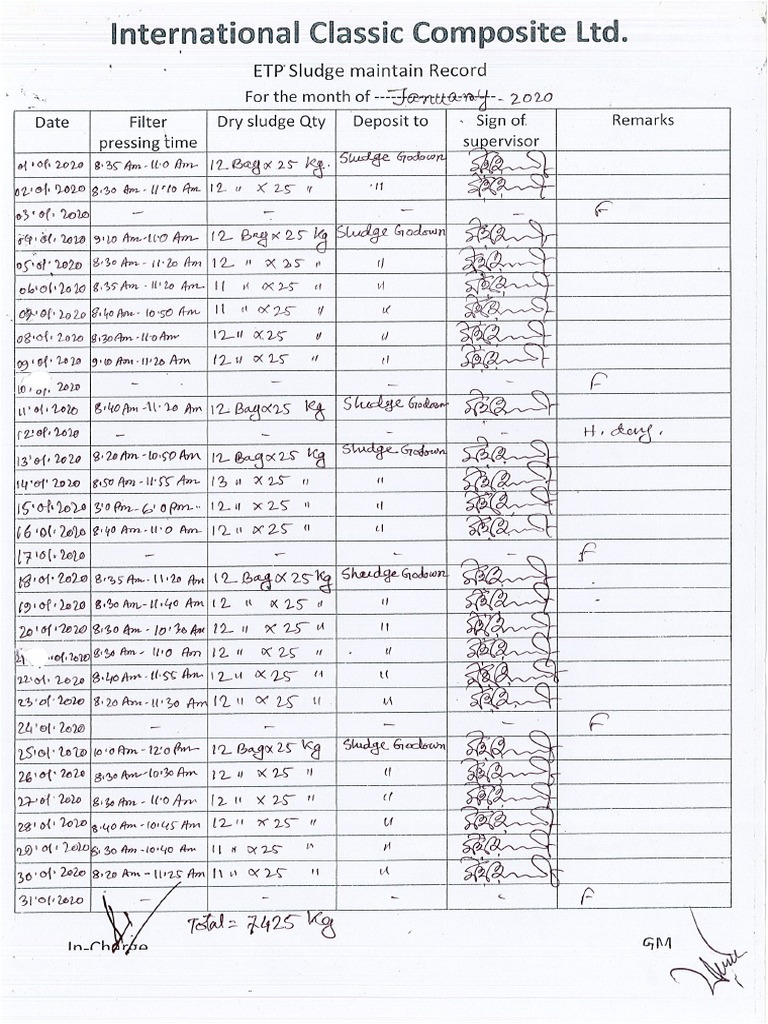 International Classic Composite Ltd.
ETP Sludge maintain Record
For the month of January - 2020
Date Filter pressing time Dry sludge Qty Deposit to Sign of supervisor Remarks
01.01.2020 8.35 Am-11.0 Am 12 Bag x 25 Kg. Sludge Godown
02.01.2020 8.30 Am - 11.10 Am 12 " x 25 " "
03.01.2020 - - - - F
04.01.2020 9.10 Am-11.0 Am 12 Bag x 25 Kg Sludge Godown
05.01.2020 8.30 Am - 11.20 Am 12 " x 25 " "
06.01.2020 8.35 Am - 11.20 Am 11 " x 25 " "
07.01.2020 8.40 Am - 10.50 Am 11 " x 25 " "
08.01.2020 8.30 Am - 11.0 Am 12 " x 25 " "
09.01.2020 9.10 Am-11.20 Am 12 " x 25 " "
10.01.2020 - - - - F
11.01.2020 8.40 Am-11.20 Am 12 Bag x 25 Kg Sludge Godown
12.01.2020 - - - - H. day.
13.01.2020 8.20 Am-10.50 Am 12 Bag x 25 Kg Sludge Godown
14.01.2020 8.50 Am - 11.55 Am 13 " x 25 " "
15.01.2020 3.0 Pm - 6.0 Pm 12 " x 25 " "
16.01.2020 8.40 Am - 11.0 Am 12 " x 25 " "
17.01.2020 - - - - F
18.01.2020 8.35 Am-11.20 Am 12 Bag x 25 Kg Sludge Godown
19.01.2020 8.30 Am - 11.40 Am 12 " x 25 " "
20.01.2020 8.30 Am - 10.30 Am 12 " x 25 " "
21.01.2020 8.30 Am - 11.0 Am 12 " x 25 " "
22.01.2020 8.40 Am - 11.55 Am 12 " x 25 " "
23.01.2020 8.20 Am - 11.30 Am 12 " x 25 " "
24.01.2020 - - - - F
25.01.2020 10.0 Am-12.0 Pm 12 Bag x 25 Kg Sludge Godown
26.01.2020 8.30 Am - 10.30 Am 12 " x 25 " "
27.01.2020 8.30 Am - 11.0 Am 12 " x 25 " "
28.01.2020 8.40 Am - 10.45 Am 12 " x 25 " "
29.01.2020 8.30 Am - 10.40 Am 11 " x 25 " "
30.01.2020 8.20 Am - 11.25 Am 11 " x 25 " "
31.01.2020 - - - - F
Total = 7425 Kg
In-Charge GM